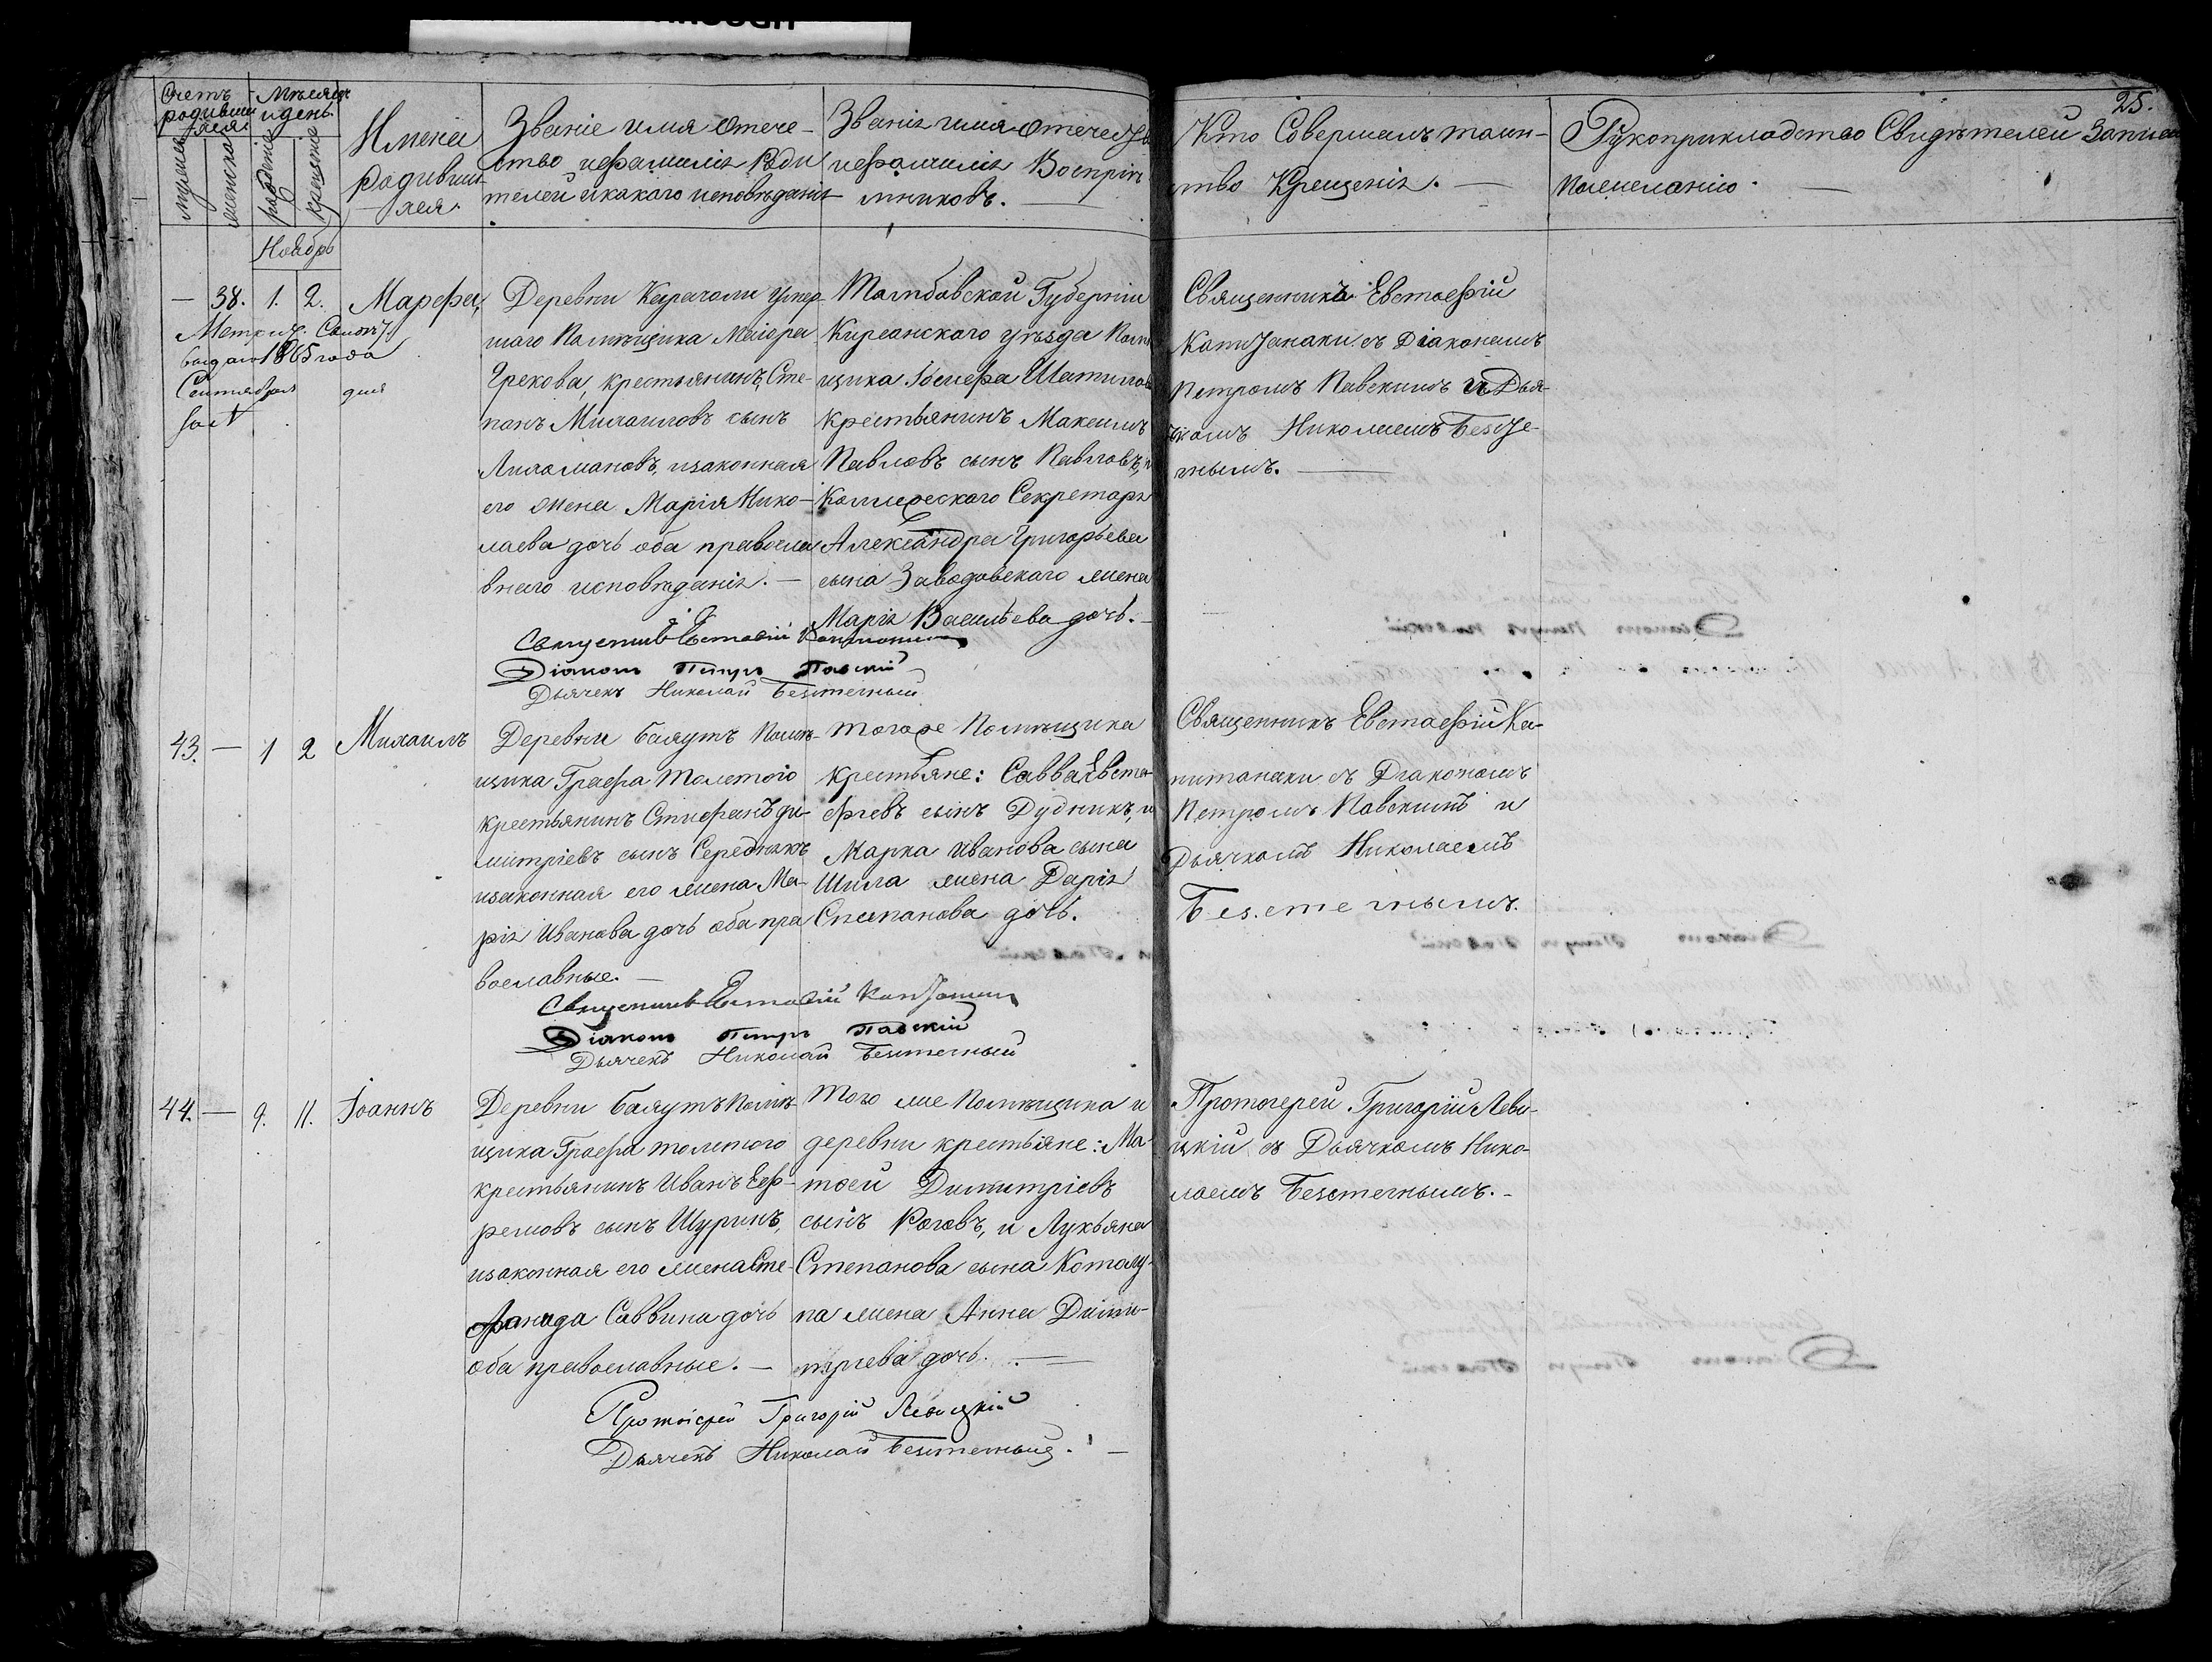 25.
Счетъ родивши
хся.
мужеска
женска
Мѣсяцъ
и день.
рожденія
крещенія
Имена
родивши
хся.
Званіе имя отече-
ство и фамилія роди
телей и какого исповѣданія
Званіе имя отечеств
и фамилія Воспріе
мниковъ.
Кто Совершалъ таин-
ство Крещенія.
Рукоприкладство Свидѣтелей Записи
по желанію.
Ноябрь
— 38. 1. 2. Марѳа,
Метрич. Свидѣт.
выдано 1865 года
Сентября дня
Деревни умер-
шаго Помѣщика Маіора
Грекова, крестьянинъ Сте-
панъ Михаиловъ сынъ
и законная
его жена Марія Нико-
лаева дочь оба правосла
внаго исповѣданія. —
Тамбовской Губерніи
Кирсанскаго уѣзда Помѣ
щика Іосифа Шатилова
крестьянинъ Максимъ
Павловъ сынъ Павловъ, и
Коллежскаго Секретаря
Александра Григорьева
сына Заводовскаго жена
Марія Васильева дочь. —
Священникъ Евстафій
Капитанаки съ Діакономъ
Петромъ Павскимъ и Дья-
чкомъ Николаемъ Безсче-
тнымъ. —
Священникъ Евстафій Капитанаки
Діаконъ Петръ Павскій
Дьячекъ Николай Безсчетный
43. — 1 2 Михаилъ
Деревни Баяутъ Помѣ-
щика Графа Толстого
крестьянинъ Стефанъ Ди-
митріевъ сынъ Середнякъ
и законная его жена Ма-
рія Иванова дочь оба пра
вославные. —
Тогоже Помѣщика
крестьяне: Савва Евста-
фіевъ сынъ Дудникъ, и
Марка Иванова сына
Шила жена Дарія
Степанова дочь.
Священникъ Евстафій Ка-
питанаки съ Діакономъ
Петромъ Павскимъ и
Дьячкомъ Николаемъ
Безсчетнымъ.
Священникъ Евстафій Капитанаки
Діаконъ Петръ Павскій
Дьячекъ Николай Безсчетный
44. — 9. 11. Іоаннъ
Деревни Баяутъ Помѣ-
щика Графа Толстого
крестьянинъ Иванъ Еф-
ремовъ сынъ Шуринъ,
и законная его жена Сте-
фанида Саввина дочь
оба православные. —
Того же Помѣщика и
деревни крестьяне: Ма-
тѳей Димитріевъ
сынъ Роговъ, и Лукьяна
Степанова сына Котолу-
па жена Анна Дими-
тріева дочь. —
Протоіерей Григорій Леви-
цкій съ Дьячкомъ Нико-
лаемъ Безсчетнымъ. —
Протоіерей Григорій Левицкій
Дьячекъ Николай Безсчетный. —